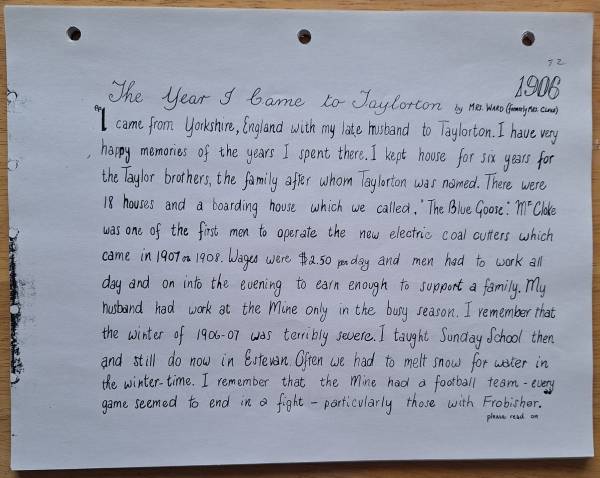 52
1906
The Year I Came to Taylorton by MRS. WARD (formerly Mrs. Cloke)
"I came from Yorkshire, England with my late husband to Taylorton. I have very
happy memories of the years I spent there. I kept house for six years for
the Taylor brothers, the family after whom Taylorton was named. There were
18 houses and a boarding house which we called, "The Blue Goose". Mr Cloke
was one of the first men to operate the new electric coal cutters which
came in 1907 or 1908. Wages were $2.50 per day and men had to work all
day and on into the evening to earn enough to support a family. My
husband had work at the Mine only in the busy season. I remember that
the winter of 1906-07 was terribly severe. I taught Sunday School then
and still do now in Estevan. Often we had to melt snow for water in
the winter-time. I remember that the Mine had a football team - every
game seemed to end in a fight - particularly those with Frobisher.
please read on